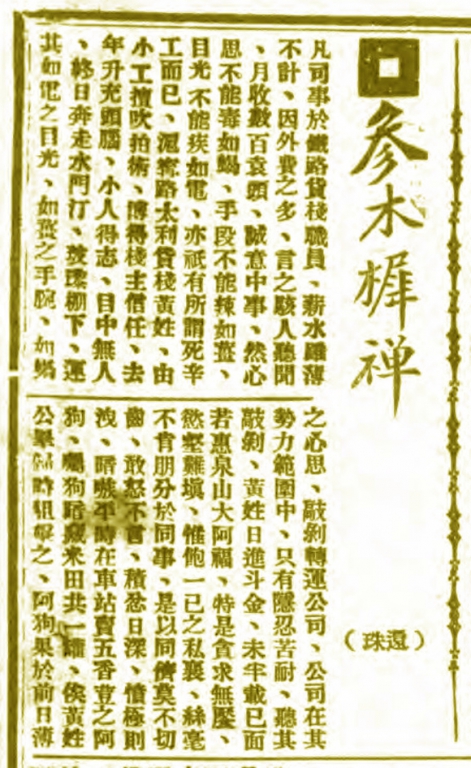 參木樨禅
（還珠）
凡司事於鐵路貨棧職員、薪水雖薄
不計、因外費之多、言之駭人聽聞
、月收數百袁頭、誠意中事、然心
思不能毒如蝎、手段不能辣如薑、
目光不能疾如電、亦祗有所謂死辛
工而已、滬寗路太利貨棧黃姓、由
小工擅吹拍術、博得棧主信任、去
年升充頭腦、小人得志、目中無人
、終日奔走水門汀、棚下、運
其如電之目光、如薑之手腕、如蝎
之心思、敲剝轉運公司、公司在其
勢力範圍中、只有隱忍苦耐、聽其
敲剝、黃姓日進斗金、未半載已面
若惠泉山大阿福、特是貪求無饜、
慾壑難塡、惟飽一己之私囊、絲毫
不肯朋分於同事、是以同儕莫不切
齒、敢怒不言、積忿日深、憤極則
洩、暗嗾平時在車站賣五香荳之阿
狗、囑狗暗藏米田共一罐、俟黃姓
公畢歸時狙擊之、阿狗果於前日薄